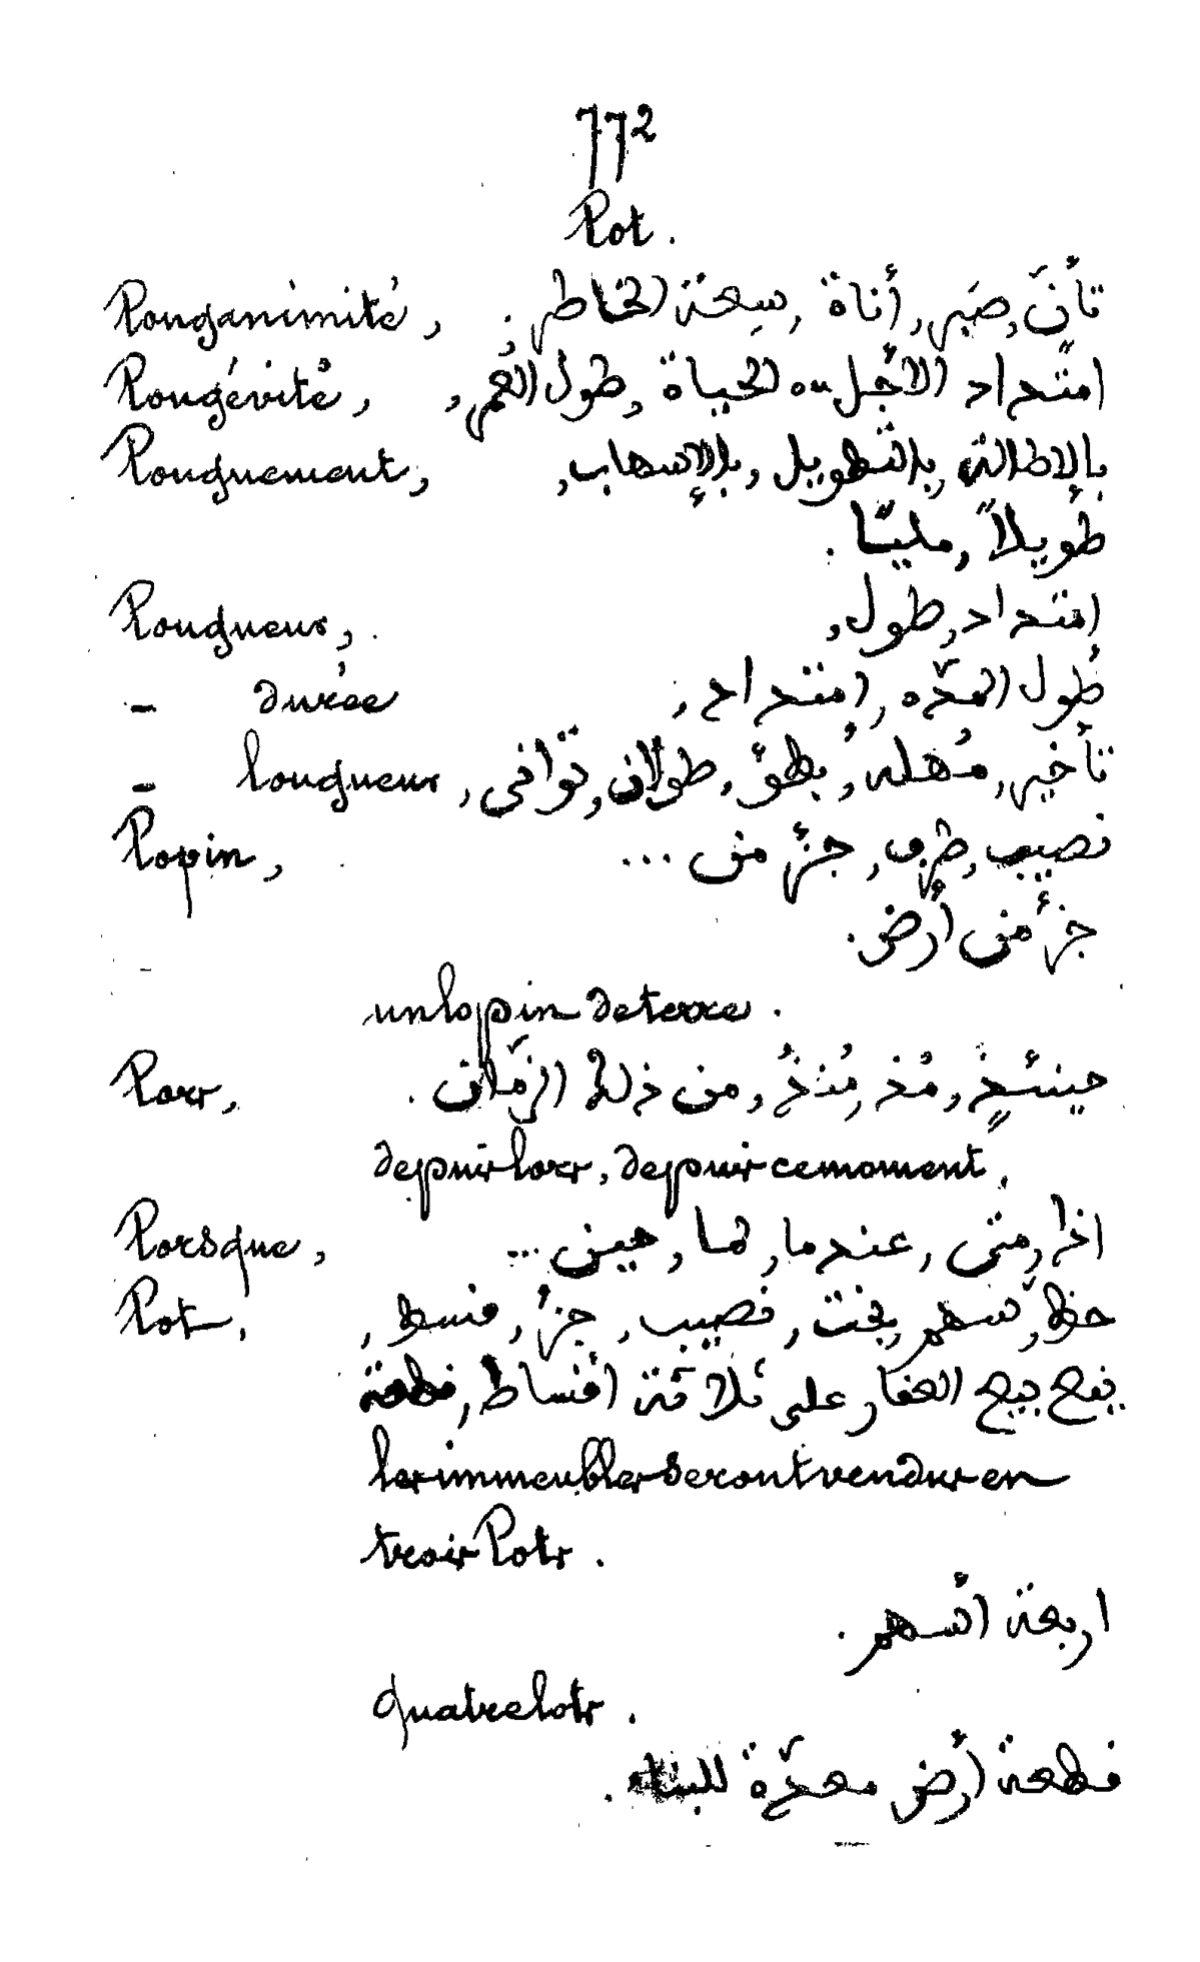 772
Lot.
Longanimité, تأنّ, صَبر, أناة, سِعة الخاطر.
Longévité, امتداد الأجل ou الحياة, طول العُمر,
Longuement, بالإطالة, بالتطويل, بالإسهاب,
طويلاً, مليّا.
Longueur, إمتداد, طول,
- durée طُول المدّه, إمتداد,
- longueur, تأخير, مُهله, بُطؤ, طولان, توَانى
Lopin, نصيب, طرف, جزء من ...
جزء من أرض.
un lopin de terre.
Lors, حينئذٍ, مُذ, مُنذُ, من ذلك الزمَان.
depuis lors, depuis ce moment,
Lorsque, اذا, متى, عندما, لما, حين ...
Lot, حظّ, سهم, بخت, نصيب, جزأ, قسط,
يقع بيع العقار على ثلاثة أقساط, قطعة
les immeubles seront vendus en
trois Lots.
اربعة أسهم.
quatre lots.
قطعة أرض معدّة للبناء.